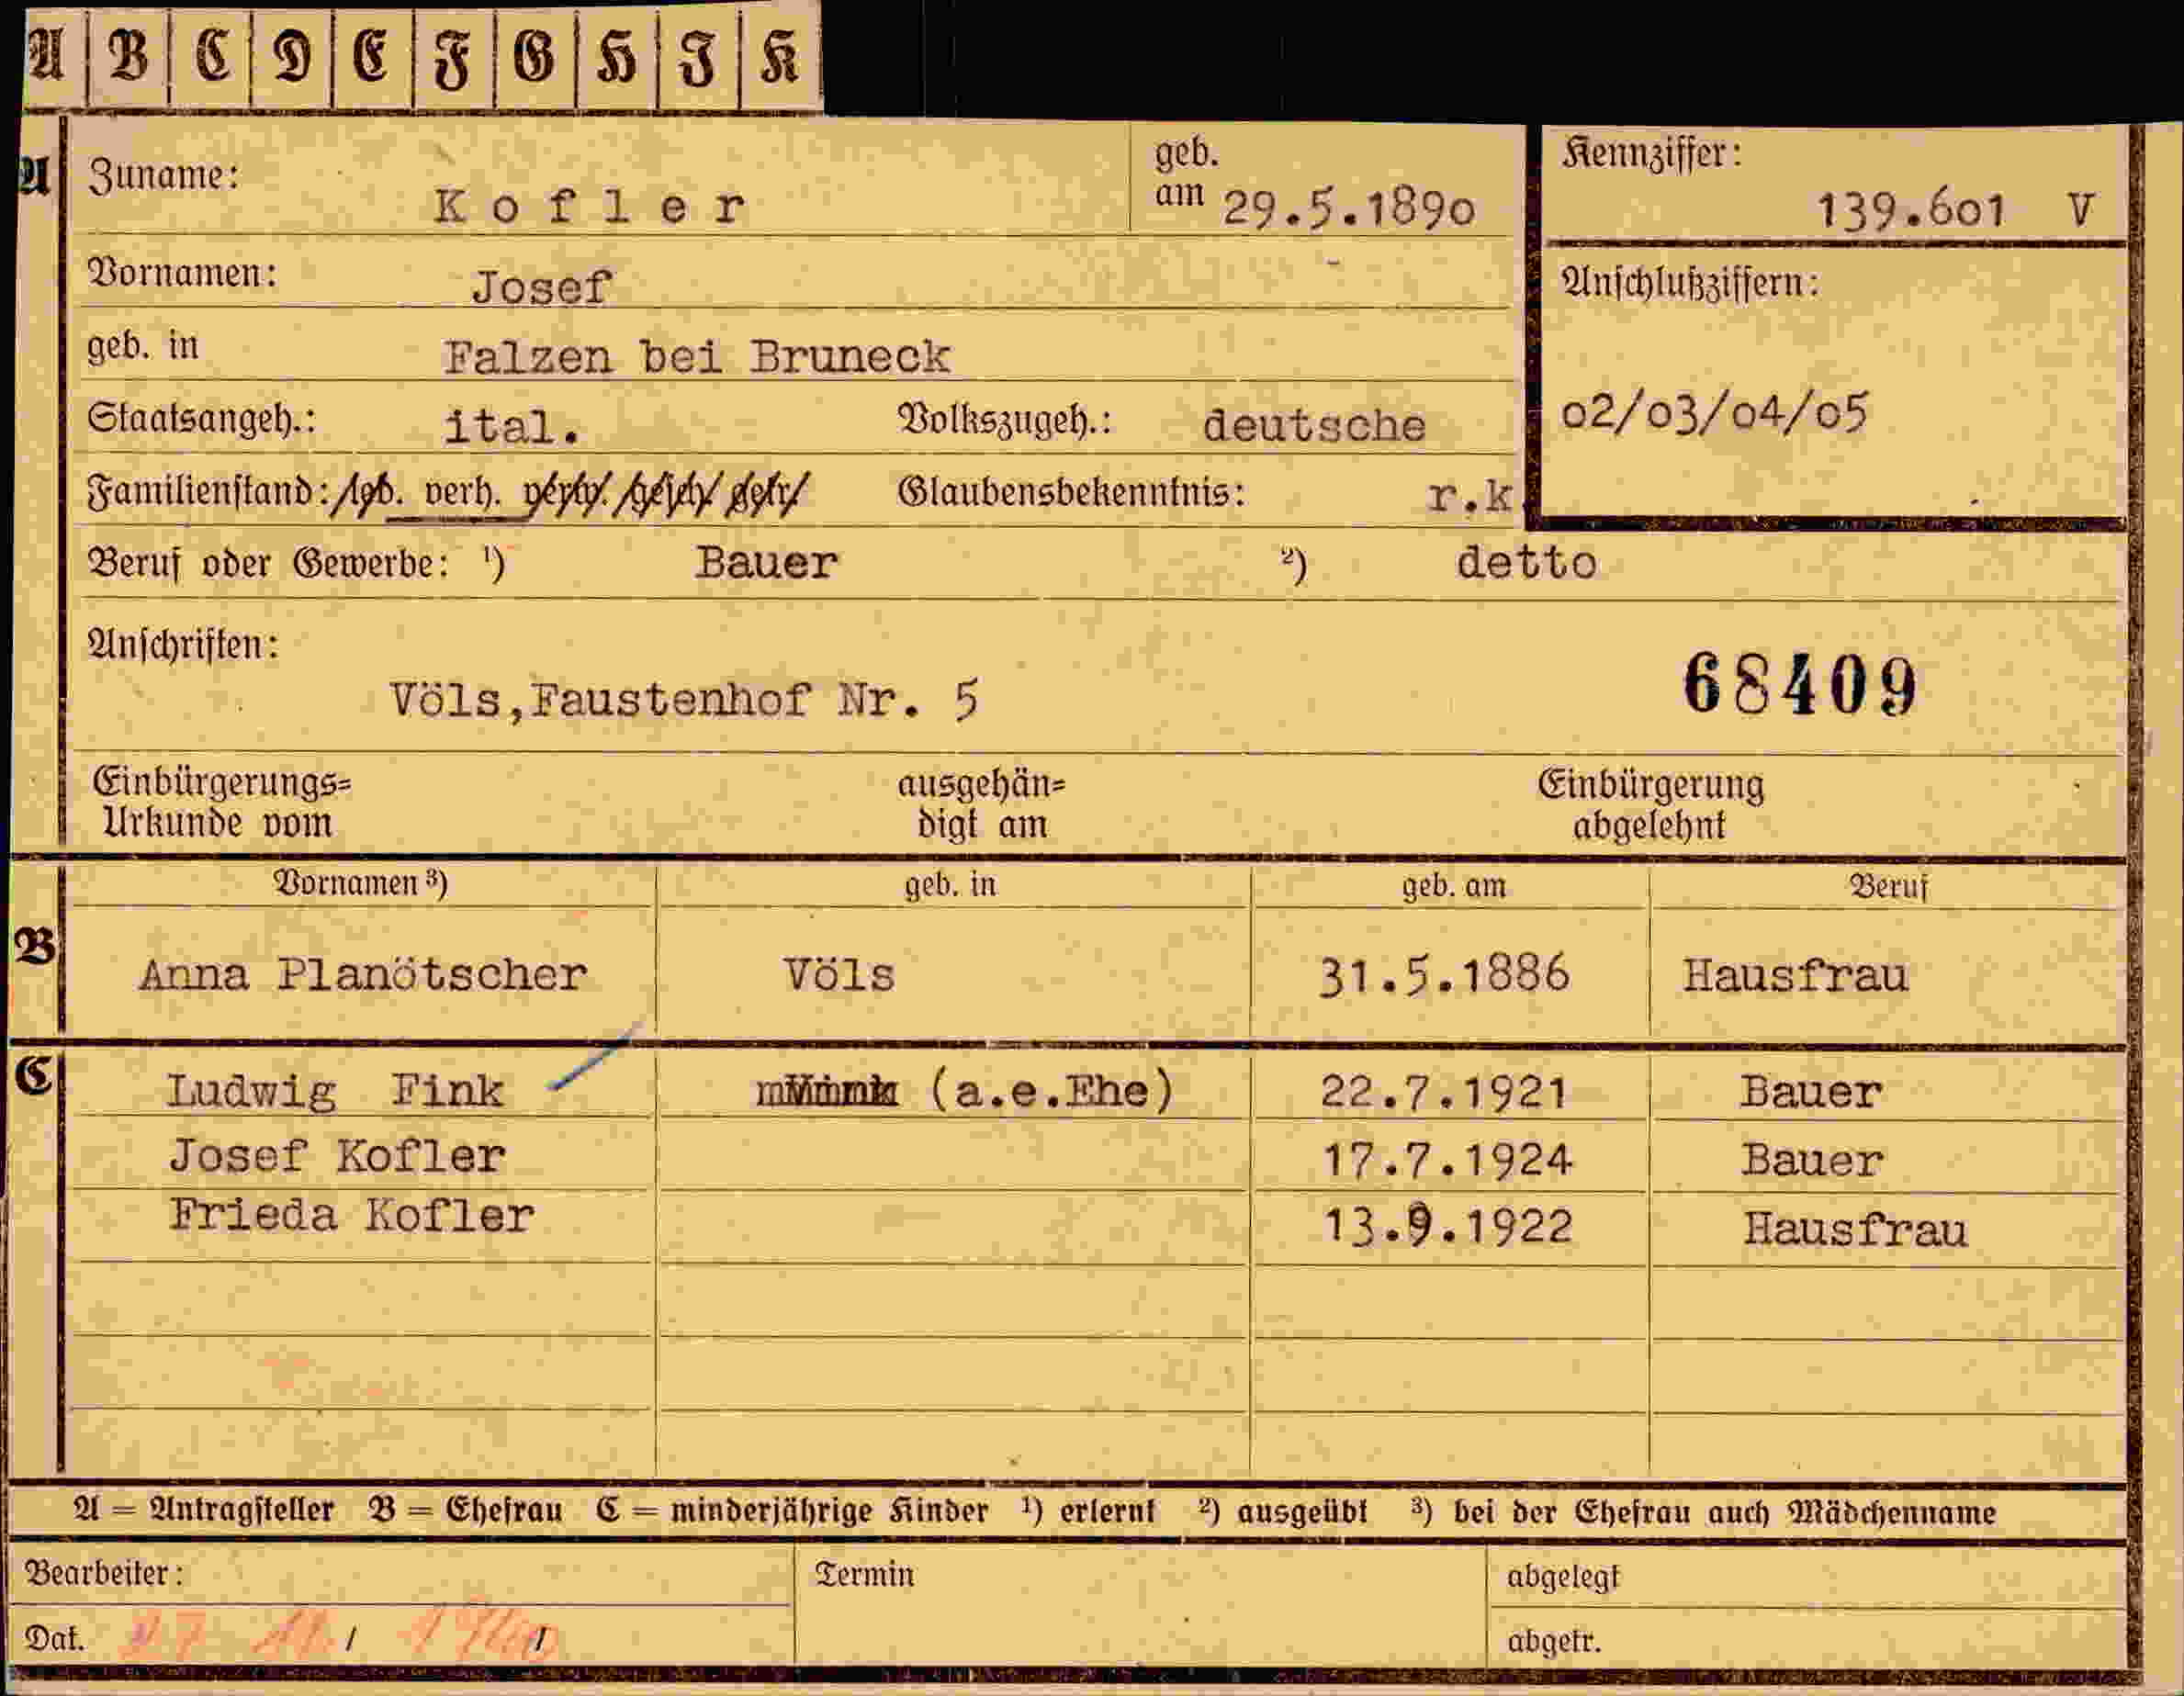 A B C D E F G H I K
A Zuname: Kofler geb. am 29.5.1890 Kennziffer: 139.601 V
Vornamen: Josef Anschlußziffern:
geb. in Falzen bei Bruneck
Staatsangeh.: ital. Volkszugeh.: deutsche 02/03/04/05
Familienstand: led. verh. verw. gesch. getr. Glaubensbekenntnis: r.k.
Beruf oder Gewerbe: ¹) Bauer ²) detto
Anschriften:
Völs,Faustenhof Nr. 5 68409
Einbürgerungs= ausgehän= Einbürgerung
Urkunde vom digt am abgelehnt
Vornamen ³) geb. in geb. am Beruf
B Anna Planötscher Völs 31.5.1886 Hausfrau
C Ludwig Fink (a.e.Ehe) 22.7.1921 Bauer
Josef Kofler 17.7.1924 Bauer
Frieda Kofler 13.9.1922 Hausfrau
A = Antragsteller B = Ehefrau C = minderjährige Kinder ¹) erlernt ²) ausgeübt ³) bei der Ehefrau auch Mädchenname
Bearbeiter: Termin abgelegt
Dat. abgetr.